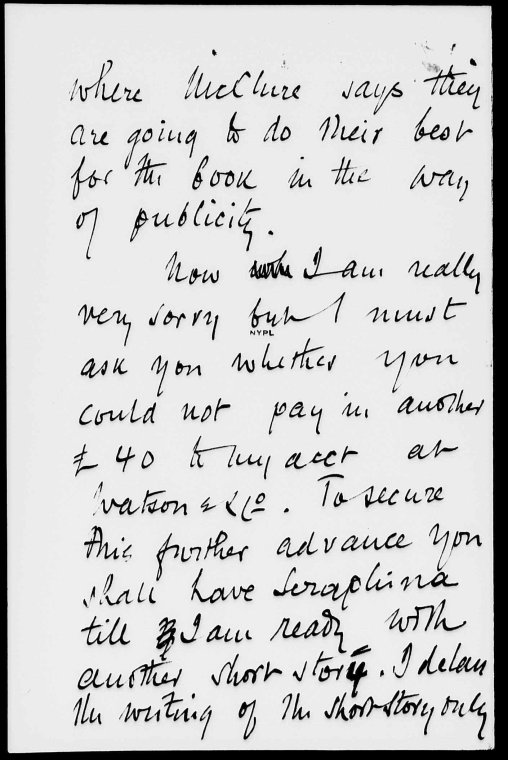 where McClure says they
are going to do their best
for the book in the way
of publicity.
Now I am really
very sorry but I must
NYPL
ask you whether you
could not pay in another
£ 40 to my acct at
Watson & Co. To secure
this further advance you
shall have Seraphina
till I am ready with
another short story. I delay
the writing of the short story only